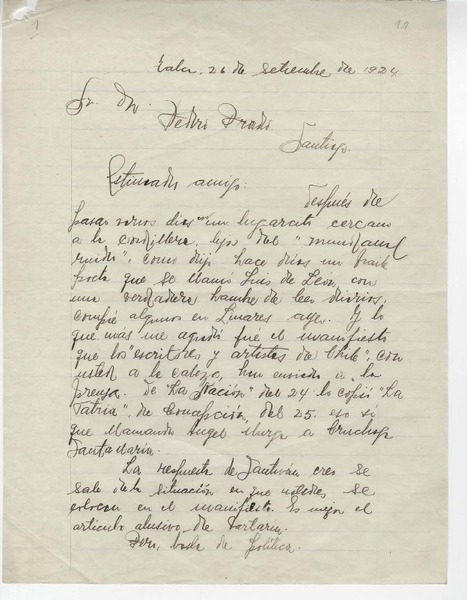 1
11
Talca, 26 de setiembre de 1924
Sr. Dn.
Pedro Prado
Santiago.
Estimado amigo: Después de
pasar varios días en un lugarcito cercano
a la cordillera, lejos del "mundanal
ruido", como dijo hace días un fraile
poeta que se llamó Luis de León, con
una verdadera hambre de los diarios,
compré algunos en Linares ayer. Y lo
que más me agradó fué el manifiesto
que los "escritores y artistas de Chile", con
usted a la cabeza, han enviado a la
prensa. De "La Nación" del 24 lo copió "La
Patria", de Concepción, del 25. eso sí
que llamando Angel Murga a Cruchaga
Santa María.
La respuesta de Santiván creo se
sale de la situación en que ustedes se
colocan en el manifiesto. Es mejor el
artículo alusivo de Tartarin.
Pero, basta de política.